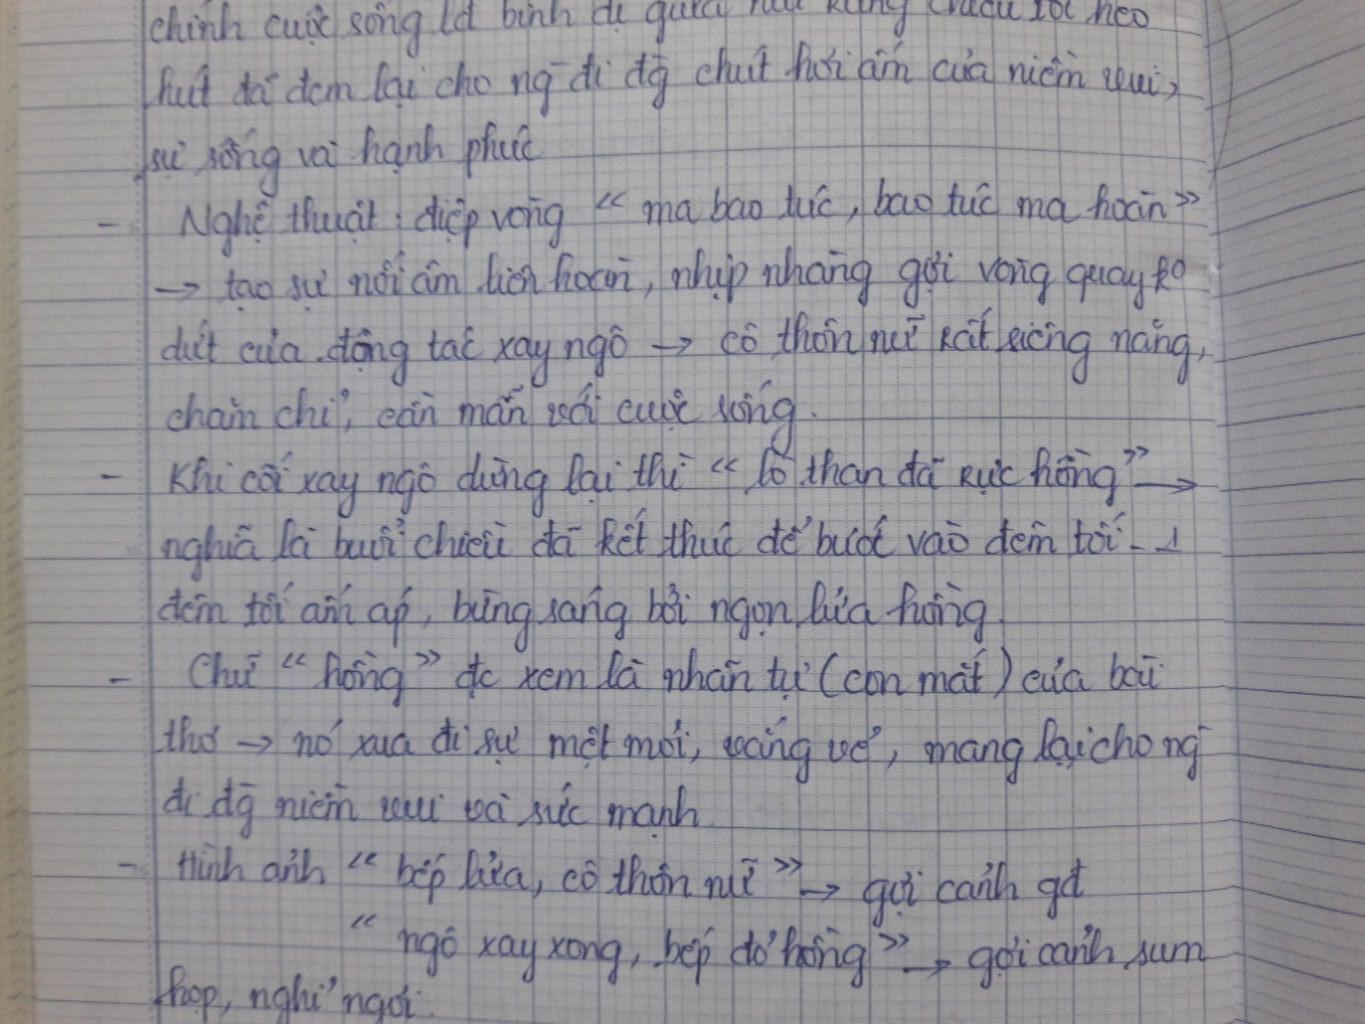 chính cuộc sống lđ bình dị giữa núi rừng chiều tối heo
hút đã đem lại cho ng đi đg chút hơi ấm của niềm vui,
sự sống và hạnh phúc
- Nghệ thuật: điệp vòng “ma bao túc, bao túc ma hoàn”
→ tạo sự nối âm liên hoàn, nhịp nhàng gợi vòng quay ko
dứt của động tác xay ngô → cô thôn nữ rất siêng năng,
chăm chỉ, cần mẫn với cuộc sống.
- Khi cối xay ngô dừng lại thì “lò than đã rực hồng” →
nghĩa là buổi chiều đã kết thúc để bước vào đêm tối - 1
đêm tối ấm áp, bừng sáng bởi ngọn lửa hồng
- Chữ “hồng” đc xem là nhãn tự (con mắt) của bài
thơ → nó xua đi sự mệt mỏi, vắng vẻ, mang lại cho ng
đi đg niềm vui và sức mạnh
- Hình ảnh “bếp lửa, cô thôn nữ” → gợi cảnh gđ
“ngô xay xong, bếp đỏ hồng” → gợi cảnh sum
họp, nghỉ ngơi.